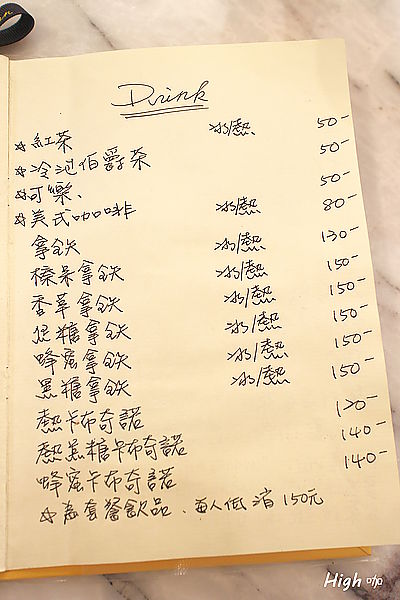 Drink
☆紅茶 冰/熱 50-
☆冷泡伯爵茶 50-
☆可樂、 50-
☆美式咖啡 冰/熱 80-
拿鉄 冰/熱 130-
榛果拿鉄 冰/熱 150-
香草拿鉄 冰/熱 150-
焦糖拿鉄 冰/熱 150-
蜂蜜拿鉄 冰/熱 150-
黑糖拿鉄 冰/熱 150-
熱卡布奇諾 120-
熱焦糖卡布奇諾 140-
蜂蜜卡布奇諾 140-
☆為套餐飲品、每人低消150元
High 咖